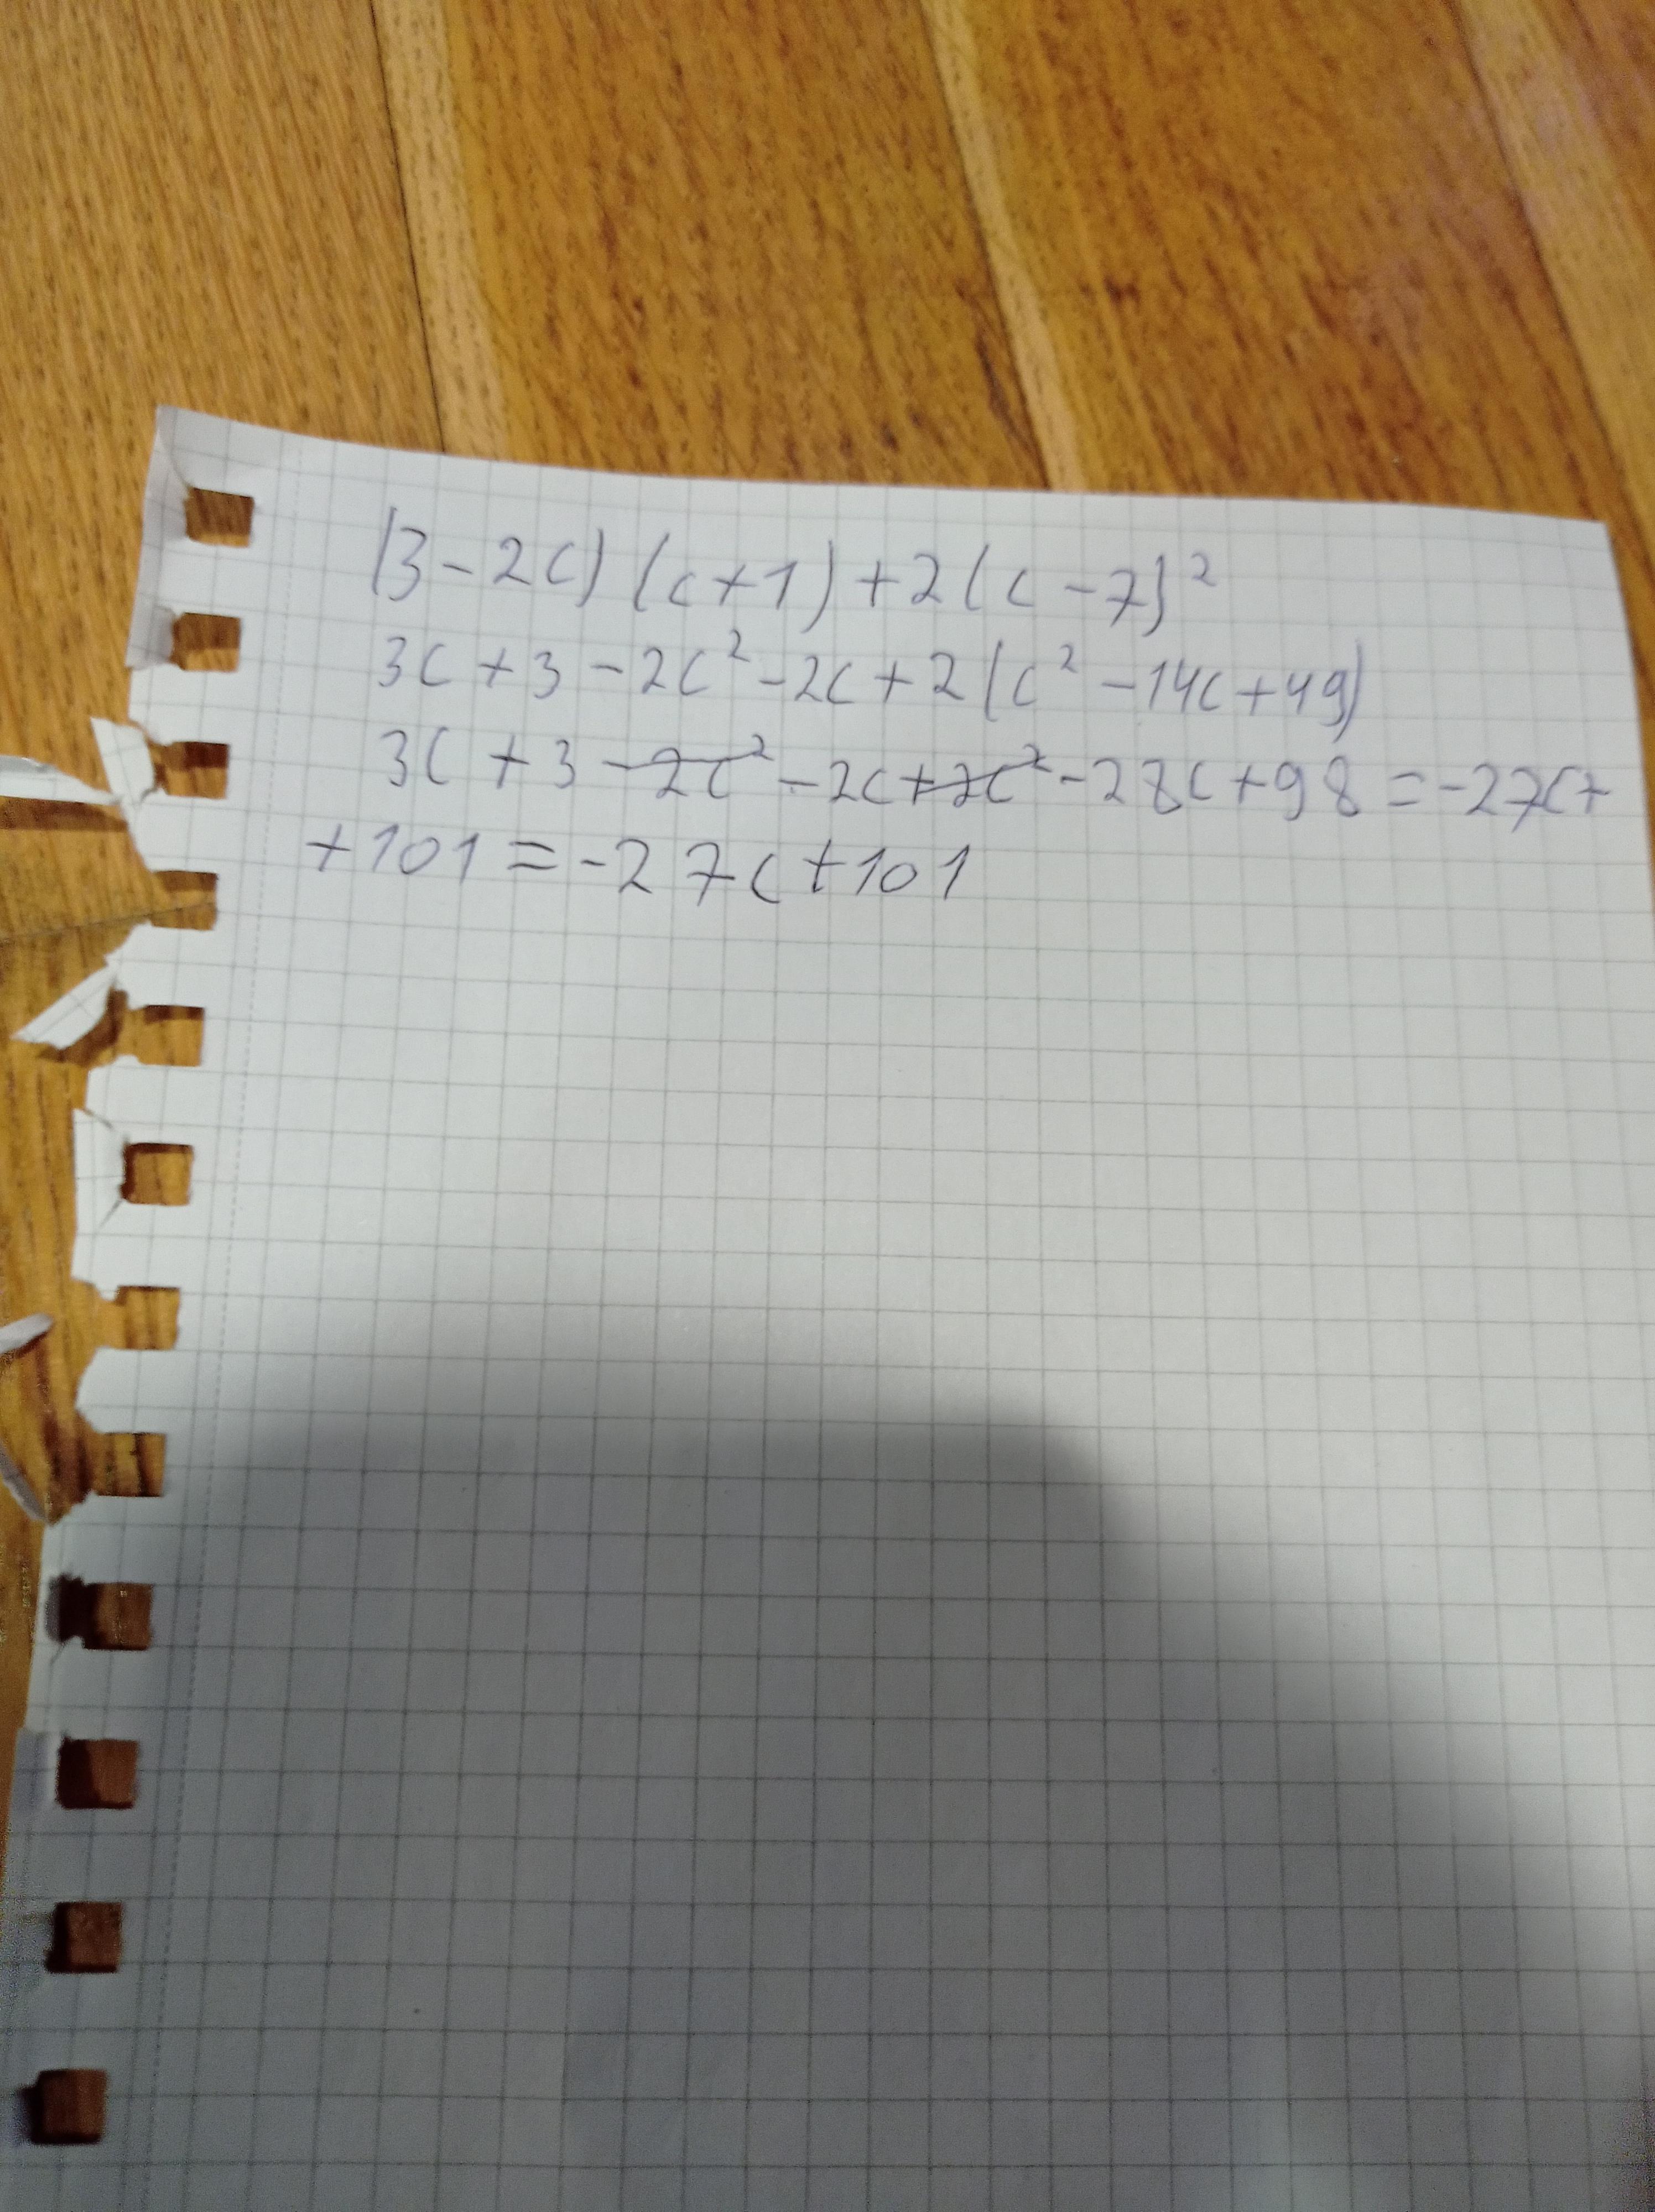 (3-2c)(c+1)+2(c-7)²
3c+3-2c²-2c+2(c²-14c+49)
3c+3-2c²-2c+2c²-28c+98=-27c+
+101=-27c+101